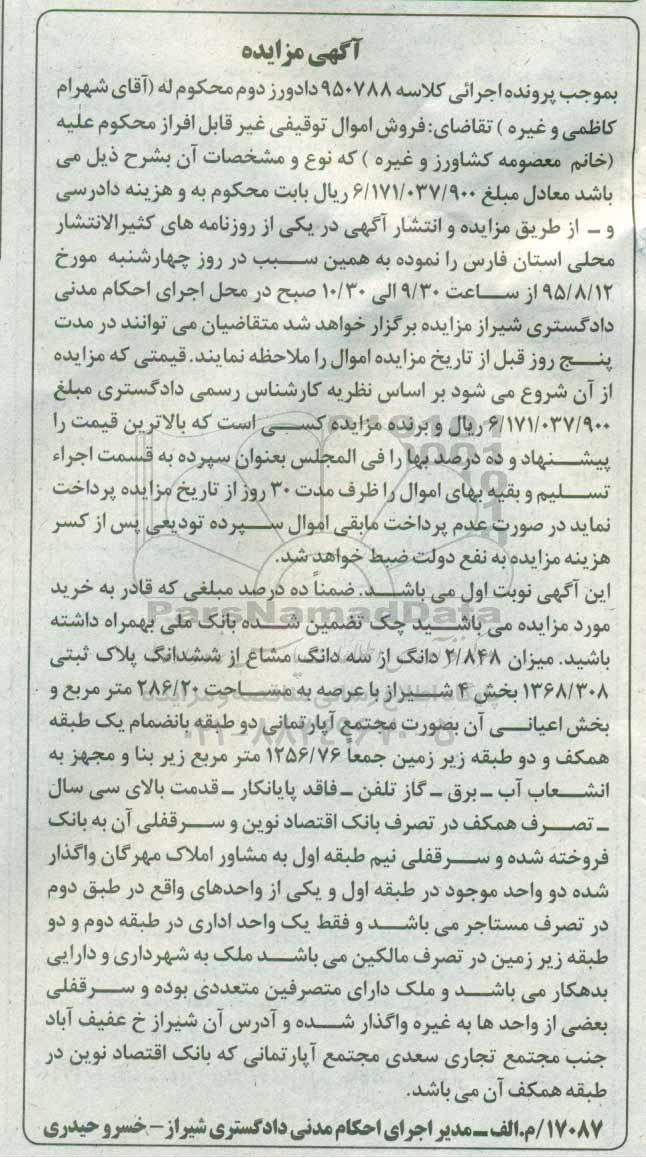 آگهی مزایده
بموجب پرونده اجرائی کلاسه ۹۵۰۷۸۸ دادورز دوم محکوم له (آقای شهرام
کاظمی و غیره ) تقاضای: فروش اموال توقیفی غیر قابل افراز محکوم علیه
(خانم معصومه کشاورز و غیره ) که نوع و مشخصات آن بشرح ذیل می
باشد معادل مبلغ ۶/۱۷۱/۰۳۷/۹۰۰ ریال بابت محکوم به و هزینه دادرسی
و ـ از طریق مزایده و انتشار آگهی در یکی از روزنامه های کثیرالانتشار
محلی استان فارس را نموده به همین سبب در روز چهارشنبه مورخ
۹۵/۸/۱۲ از ساعت ۹/۳۰ الی ۱۰/۳۰ صبح در محل اجرای احکام مدنی
دادگستری شیراز مزایده برگزار خواهد شد متقاضیان می توانند در مدت
پنج روز قبل از تاریخ مزایده اموال را ملاحظه نمایند. قیمتی که مزایده
از آن شروع می شود بر اساس نظریه کارشناس رسمی دادگستری مبلغ
۶/۱۷۱/۰۳۷/۹۰۰ ریال و برنده مزایده کسی است که بالاترین قیمت را
پیشنهاد و ده درصد بها را فی المجلس بعنوان سپرده به قسمت اجراء
تسلیم و بقیه بهای اموال را ظرف مدت ۳۰ روز از تاریخ مزایده پرداخت
نماید در صورت عدم پرداخت مابقی اموال سپرده تودیعی پس از کسر
هزینه مزایده به نفع دولت ضبط خواهد شد.
این آگهی نوبت اول می باشد. ضمناً ده درصد مبلغی که قادر به خرید
مورد مزایده می باشید چک تضمین شده بانک ملی بهمراه داشته
باشید. میزان ۲/۸۴۸ دانگ از سه دانگ مشاع از ششدانگ پلاک ثبتی
۱۳۶۸/۳۰۸ بخش ۴ شیراز با عرصه به مساحت ۲۸۶/۲۰ متر مربع و
بخش اعیانی آن بصورت مجتمع آپارتمانی دو طبقه بانضمام یک طبقه
همکف و دو طبقه زیر زمین جمعا ۱۲۵۶/۷۶ متر مربع زیر بنا و مجهز به
انشعاب آب ـ برق ـ گاز تلفن ـ فاقد پایانکار ـ قدمت بالای سی سال
ـ تصرف همکف در تصرف بانک اقتصاد نوین و سرقفلی آن به بانک
فروخته شده و سرقفلی نیم طبقه اول به مشاور املاک مهرگان واگذار
شده دو واحد موجود در طبقه اول و یکی از واحدهای واقع در طبق دوم
در تصرف مستاجر می باشد و فقط یک واحد اداری در طبقه دوم و دو
طبقه زیر زمین در تصرف مالکین می باشد ملک به شهرداری و دارایی
بدهکار می باشد و ملک دارای متصرفین متعددی بوده و سرقفلی
بعضی از واحد ها به غیره واگذار شده و آدرس آن شیراز خ عفیف آباد
جنب مجتمع تجاری سعدی مجتمع آپارتمانی که بانک اقتصاد نوین در
طبقه همکف آن می باشد.
۱۷۰۸۷/م.الف ـ مدیر اجرای احکام مدنی دادگستری شیراز – خسرو حیدری
ParsNamadData